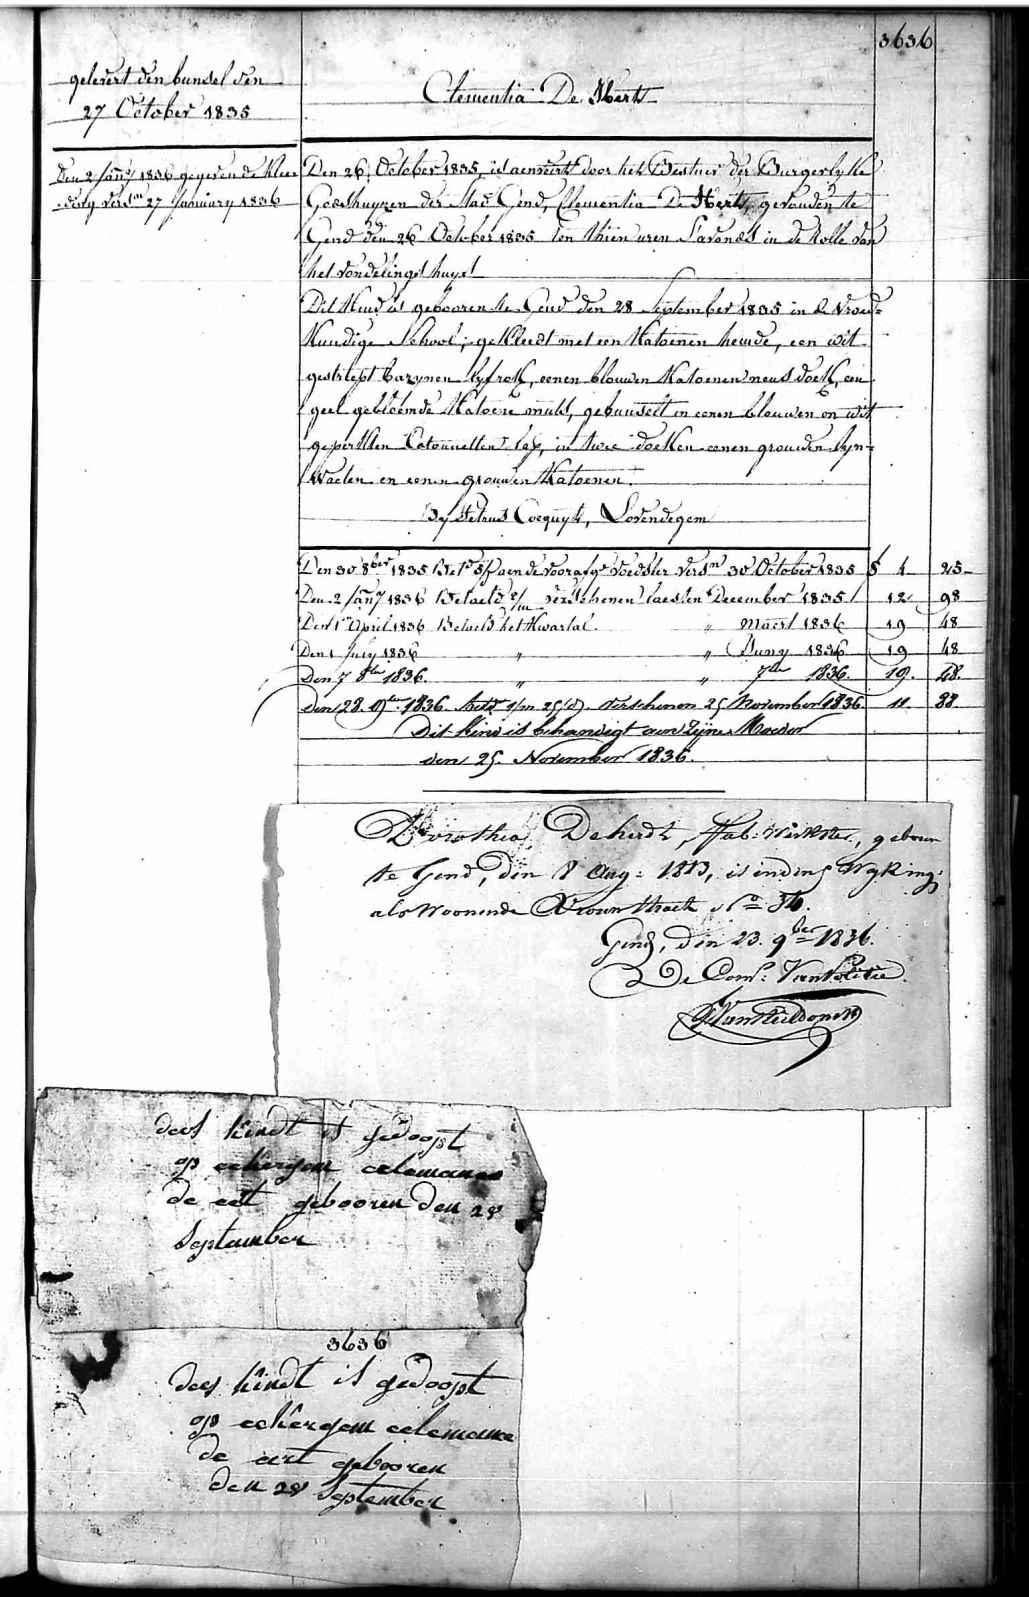 3636
gelevert den bunsel den
27 October 1835
Clementia De Herts
Den 2 Janry 1836 gegeven de Klee
dery versn 27 January 1836
Den 26 October 1835, is aenveert door het Bestuer der Burgerlyke
Godshuyzen der Stad Gend, Clementia De Herts, gevonden te
Gend den 26 October 1835 ten thien uren s'avonds in de Rolle van
het vondelings huys
Dit Kind is gebooren te Gend den 28 September 1835 in de Vroed=
Kundige School; gekleedt met een Katoenen hemde, een wit
gestrept bazynen lyfrok, eenen blouwen Katoenen neusdoek, een
geel gebloemde Katoene muts, gebunselt in eenen blouwen en wit
geperkten Cotonnetten lap, in twee doeken eenen grouwen lyn=
waeten en eenen grouwen Katoenen.
By Petrus Cocquyt, Lovendegem
Den 30 8ber 1835 Bet. aen de voorafge voedster versn 30 October 1835 f 4 25
Den 2 Janry 1836 Betaeld 2/m verschenen laesten December 1835 12 98
Den 1n April 1836 Betaeld het Kwartal " Maert 1836 19 48
Den 1 July 1836 " " Juny 1836 19 48
Den 7 8ber 1836 " " 7ber 1836 19 48
Den 28. 9ber 1836 betd 1/m 25/d. verschenen 25 November 1836 11 88
Dit kind is behandigt aen Zyne Moeder
den 25 November 1836.
Dorothea Deherdt, Fab: Werkster, geboren
te Gend, den 8 Aug: 1813, is in den 5 Wyk ing:
als Woonende Vrouwstraet No 36.
Gend, den 23. 9ber 1836.
De Coms: Van Politie
dees kindt is gedoopt
op eekergem celemance
de eert gebooren den 28
September
3636
dees kindt is gedoopt
op eekergem celemance
de eert gebooren
den 28 September